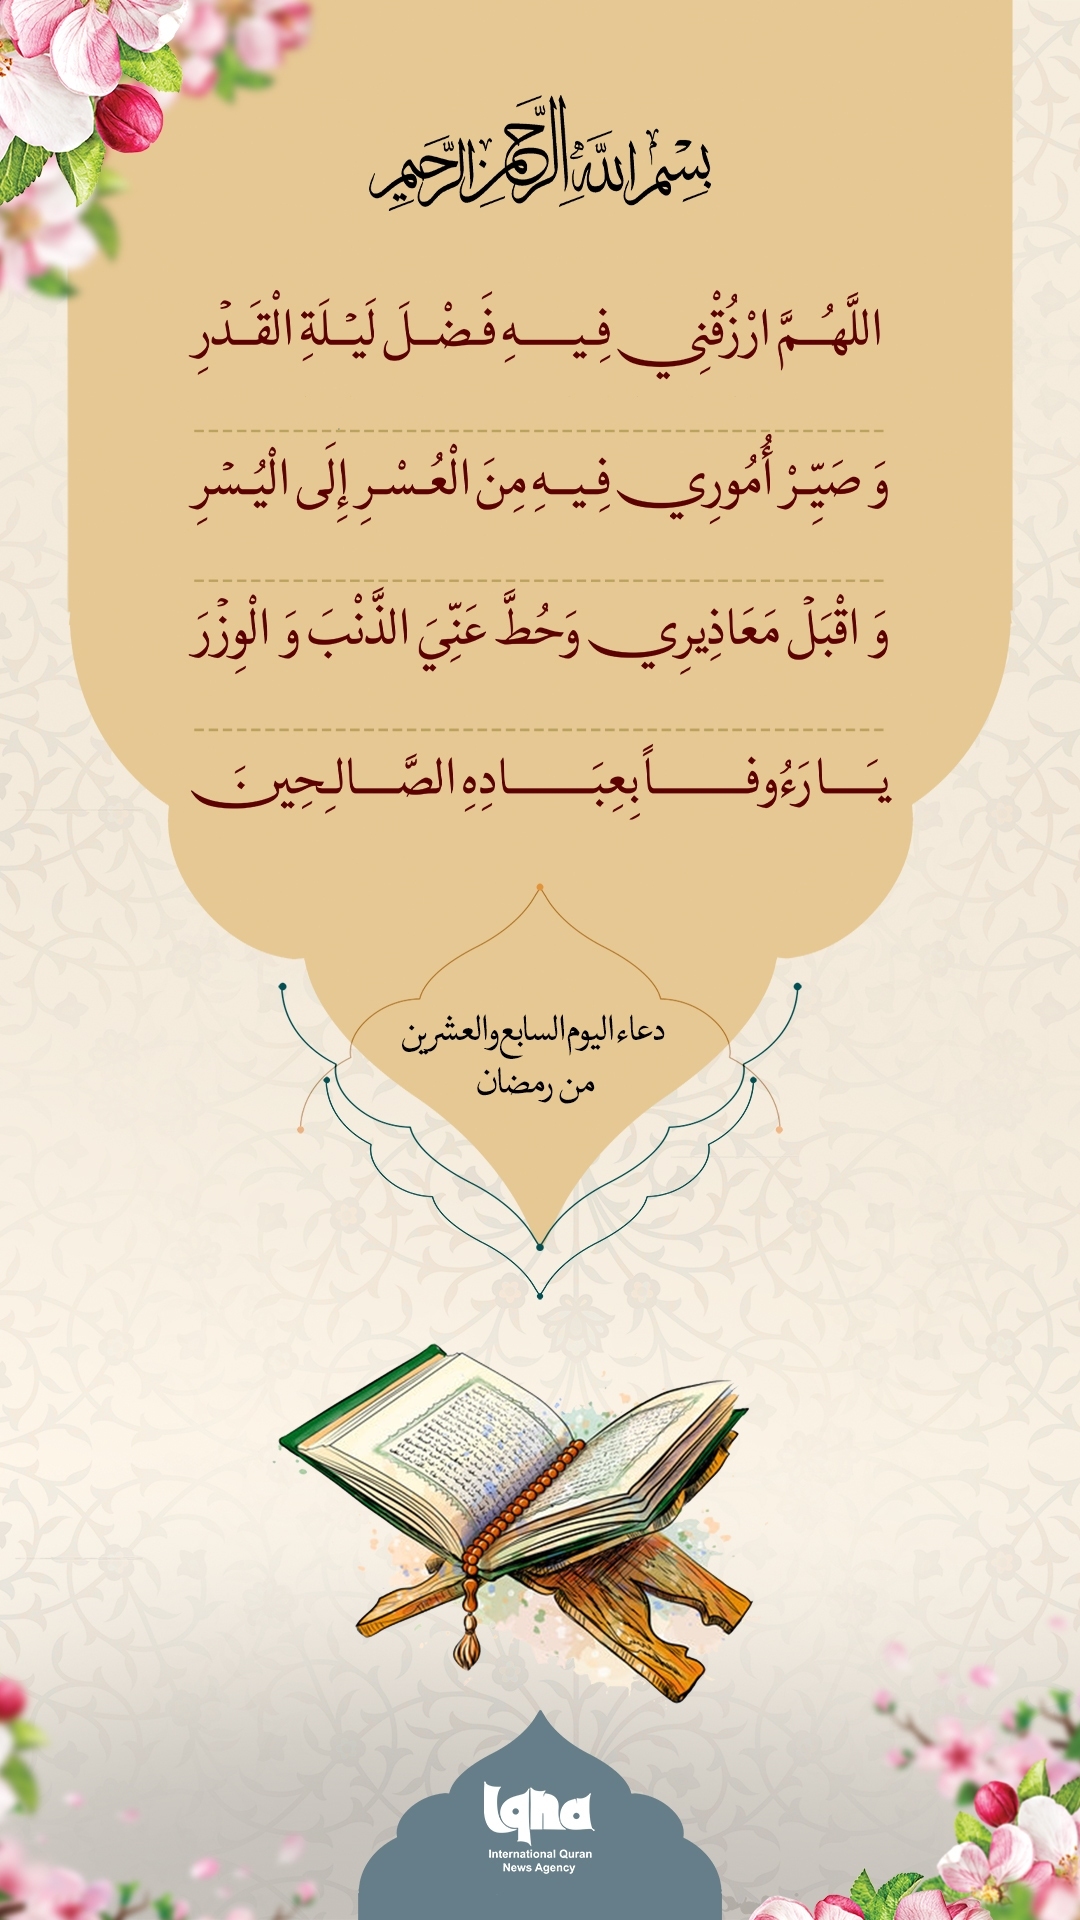 بِسْمِ اللَّهِ الرَّحْمَنِ الرَّحِيمِ
اللَّهُمَّ ارْزُقْنِي فِيهِ فَضْلَ لَيْلَةِ الْقَدْرِ
وَ صَيِّرْ أُمُورِي فِيهِ مِنَ الْعُسْرِ إِلَى الْيُسْرِ
وَ اقْبَلْ مَعَاذِيرِي وَحُطَّ عَنِّيَ الذَّنْبَ وَ الْوِزْرَ
يَا رَءُوفاً بِعِبَادِهِ الصَّالِحِينَ
دعاء اليوم السابع والعشرين
من رمضان
Iqna
International Quran
News Agency